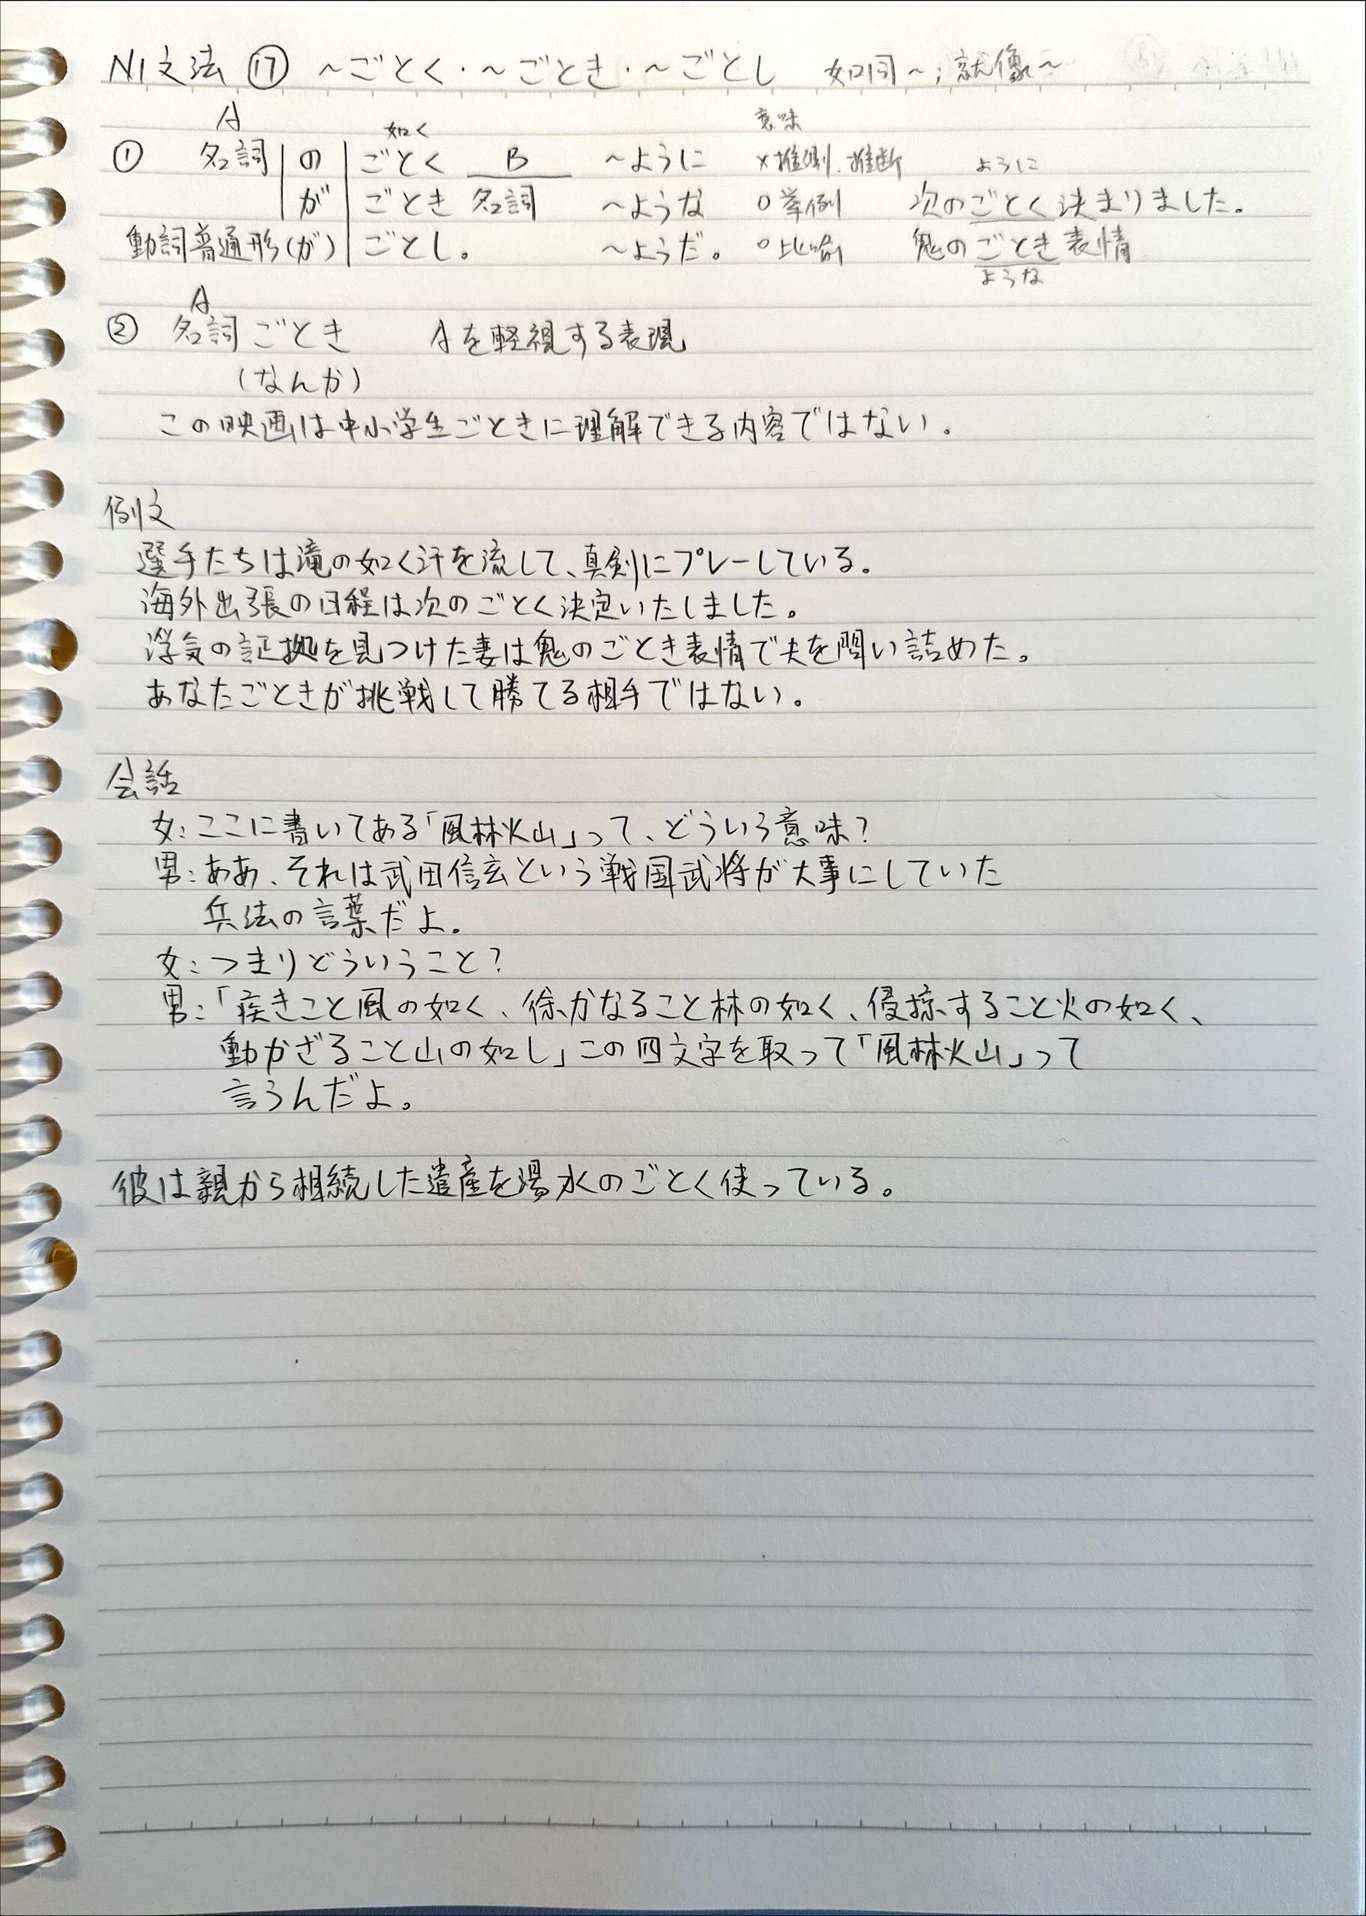 N1文法 ⑰ ～ごとく・～ごとき・～ごとし 如同～;就像～
A 如く 意味
① 名詞 の ごとく B ～ように ×推測、推断 ように
が ごとき 名詞 ～ような ○挙例 次のごとく決まりました。
動詞普通形(が) ごとし。 ～ようだ。 ○比喻 鬼のごとき表情
ような
A
② 名詞ごとき Aを軽視する表現
(なんか)
この映画は中小学生ごときに理解できる内容ではない。
例文
選手たちは滝の如く汗を流して、真剣にプレーしている。
海外出張の日程は次のごとく決定いたしました。
浮気の証拠を見つけた妻は鬼のごとき表情で夫を問い詰めた。
あなたごときが挑戦して勝てる相手ではない。
会話
女:ここに書いてある「風林火山」って、どういう意味?
男:ああ、それは武田信玄という戦国武将が大事にしていた
兵法の言葉だよ。
女:つまりどういうこと?
男:「疾きこと風の如く、徐かなること林の如く、侵掠すること火の如く、
動かざること山の如し」この四文字を取って「風林火山」って
言うんだよ。
彼は親から相続した遺産を湯水のごとく使っている。